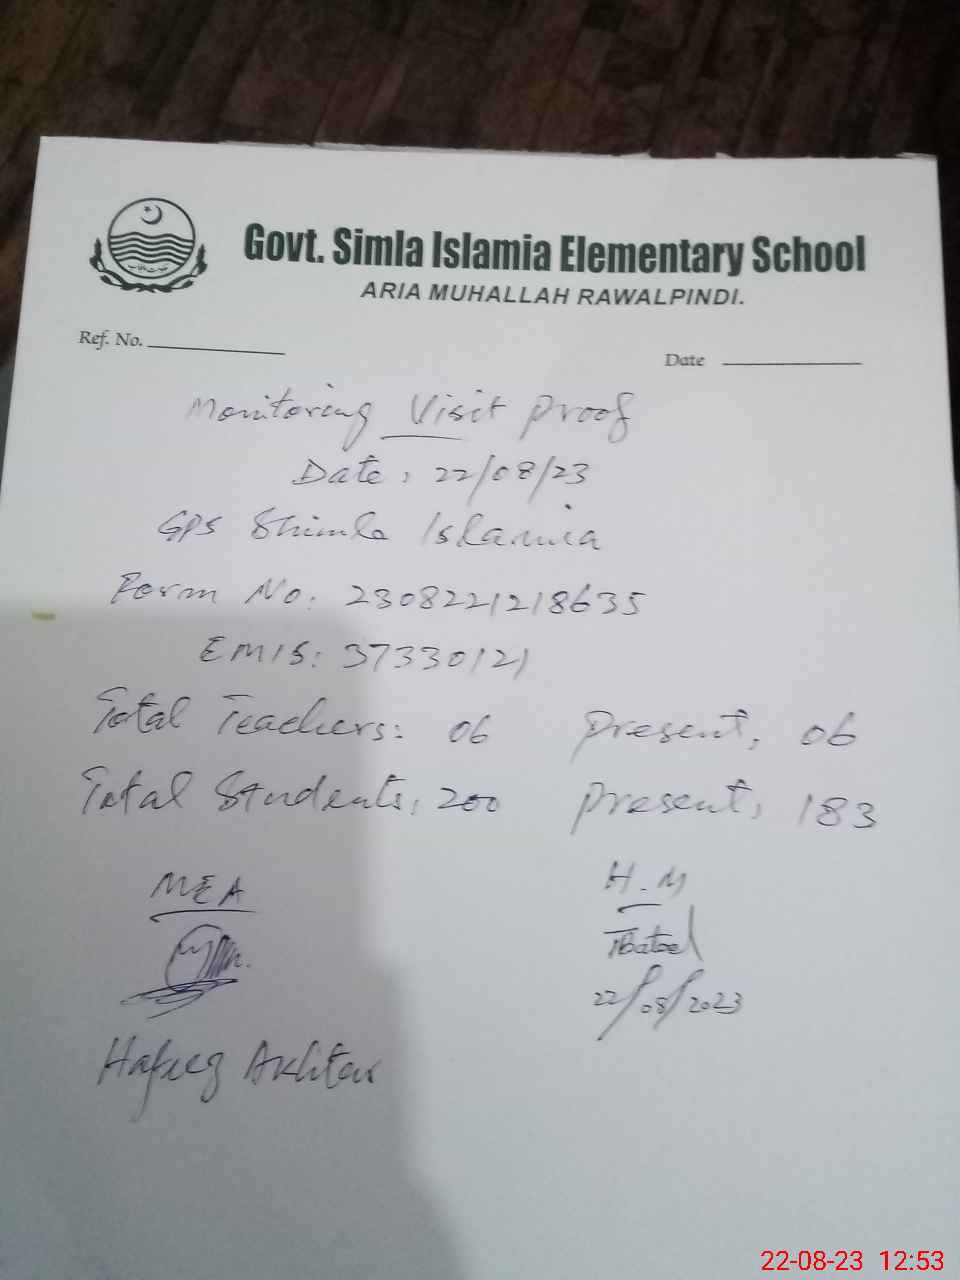 Govt. Simla Islamia Elementary School
ARIA MUHALLAH RAWALPINDI.
Ref. No.
Date
Monitoring Visit Proof
Date: 22/08/23
GPS Shimla Islamia
Form No: 2308221218635
EMIS: 37330121
Total Teachers: 06 Present, 06
Total Students, 200 Present, 183
MEA H.M
22/08/2023
Hafeez Akhtar
22-08-23 12:53